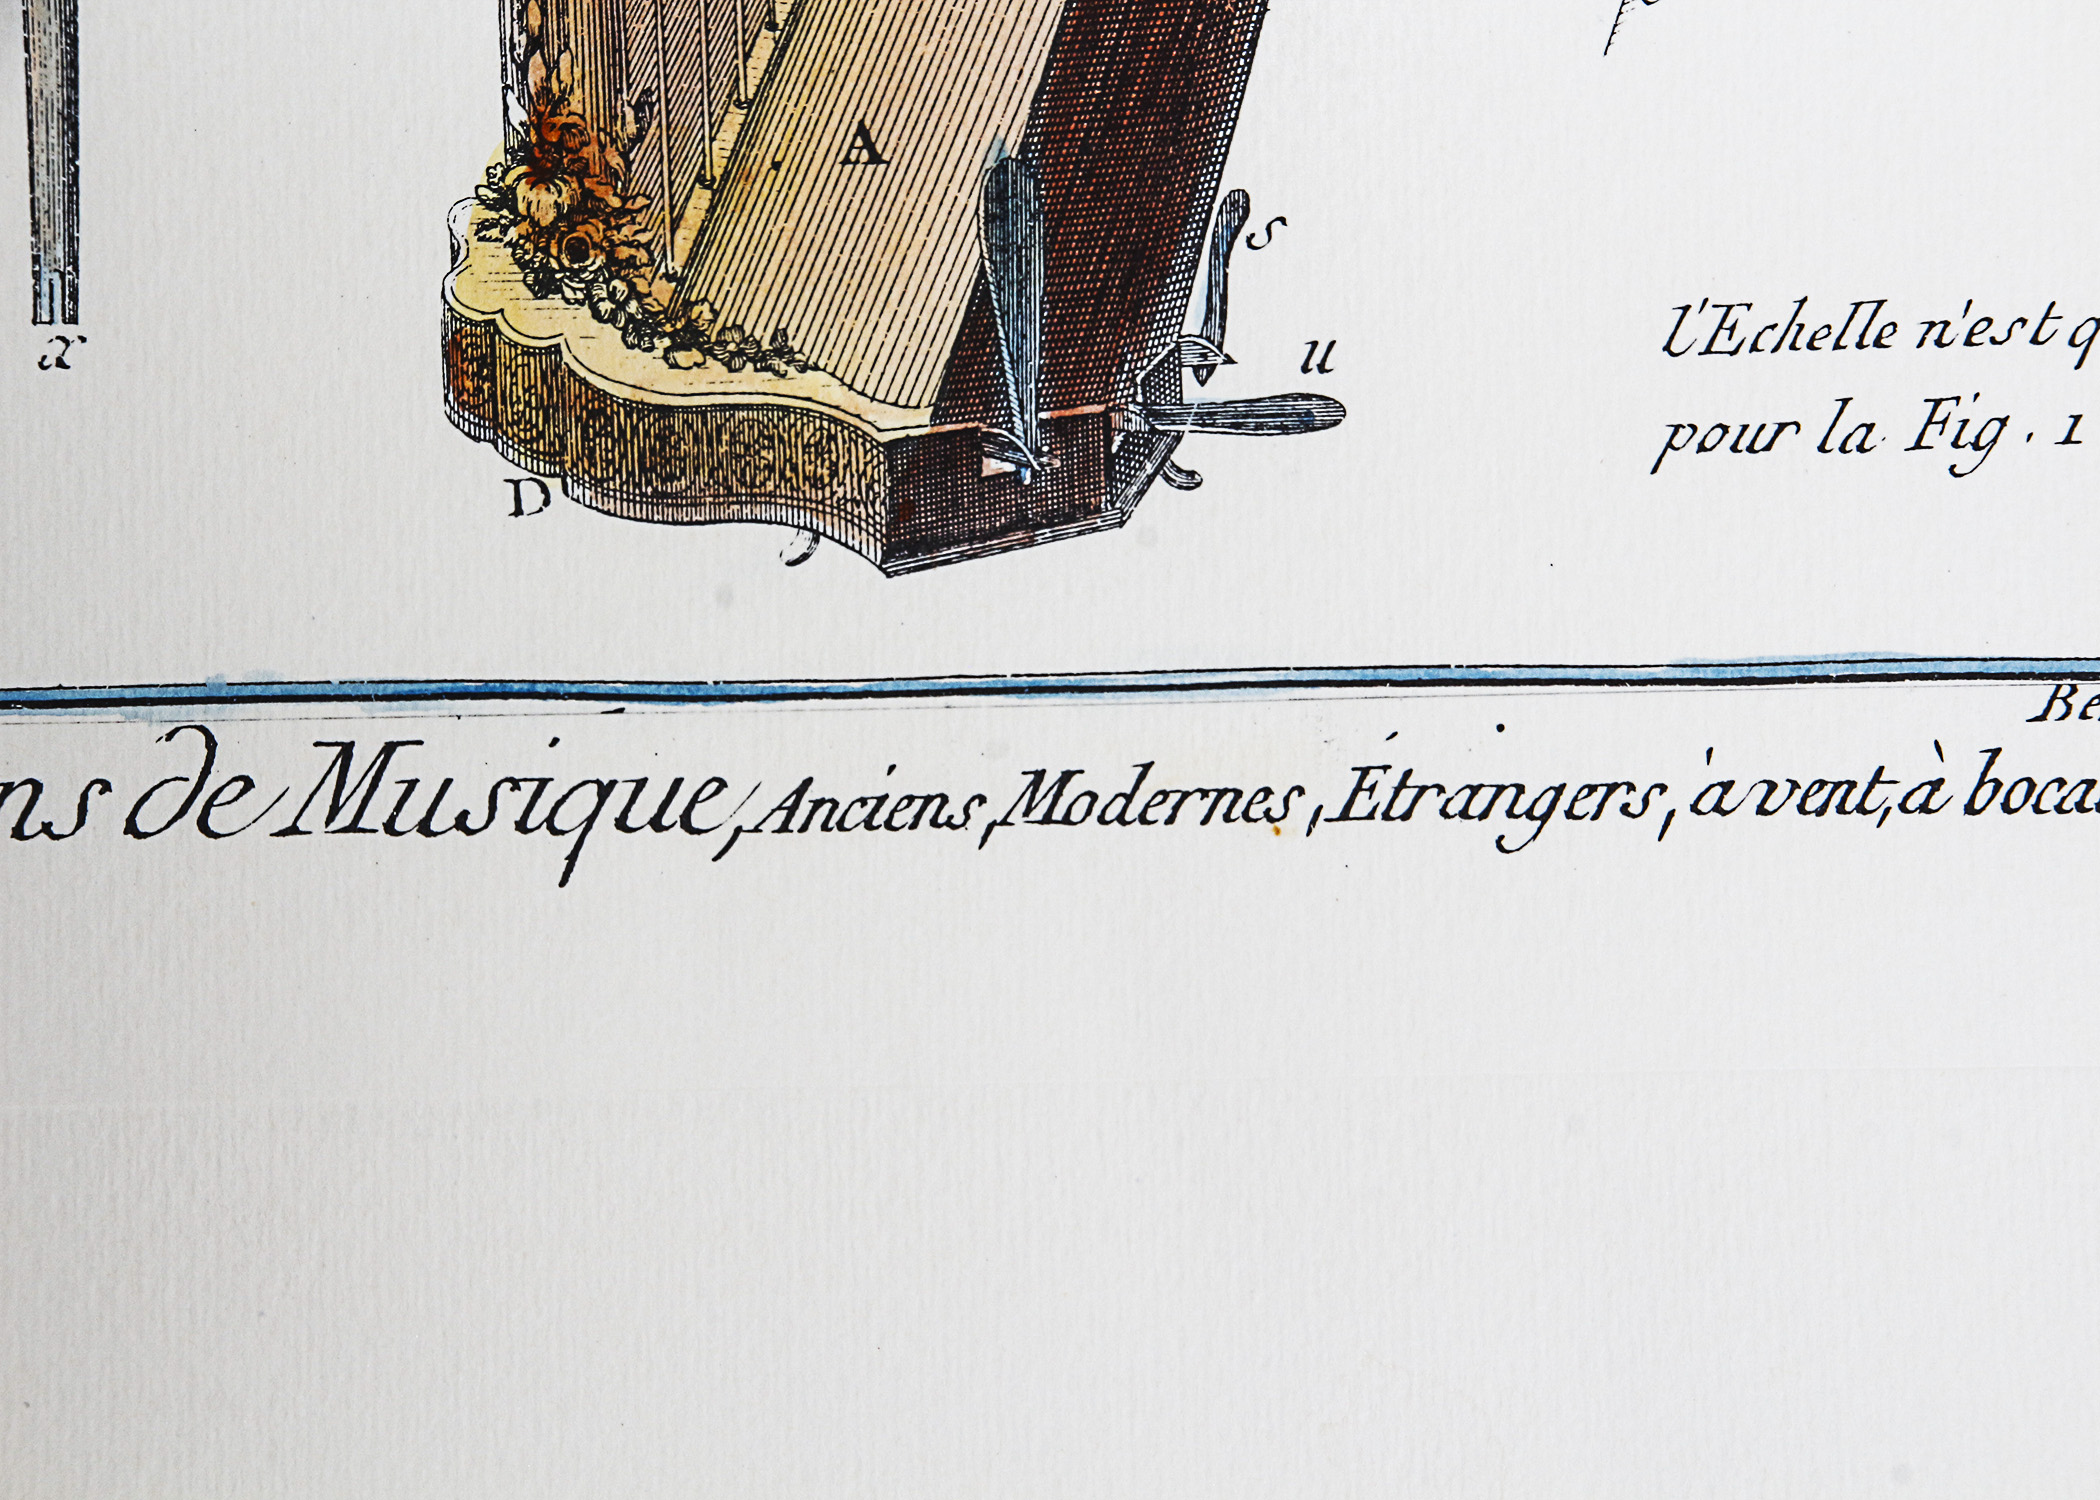 A
s
u
x
l'Echelle n'est q
pour la Fig. 1
D
Be
ns de Musique, Anciens, Modernes, Étrangers, à vent, à boca